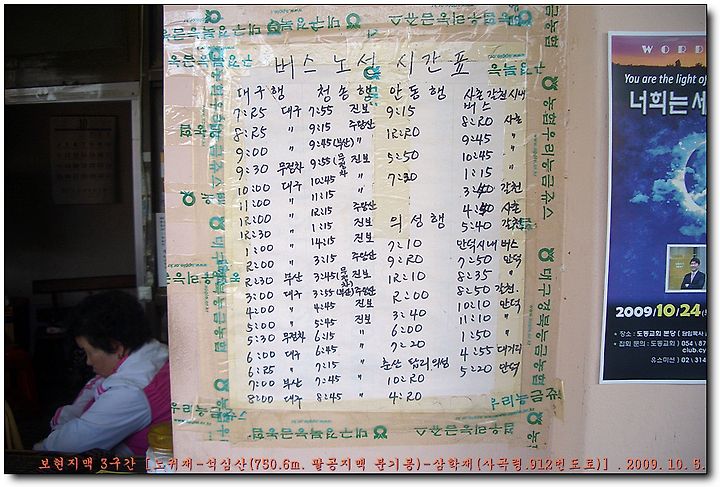 버스 노선 시간표
대구행 청송행 안동행 사촌 감천 시내버스
7:25 대구 7:55 진보 9:15 8:20 사촌
8:25 〃 9:15 주왕산 12:20 9:45 〃
9:00 〃 9:45 (부산) 〃 5:50 10:45 〃
9:30 무정차 9:55 (무정차) 진보 7:30 1:15 〃
10:00 대구 10:45 〃
11:00 〃 11:15 〃
12:00 〃 12:15 주왕산 의성행 5:40
12:30 〃 1:15 진보 안덕시내버스
1:00 〃 14:15 진보 7:10 7:50 안덕
2:00 〃 3:15 주왕산 9:20 8:35 〃
2:30 부산 3:45 (무정차) 진보 12:10 8:50
3:00 대구 3:55 (부산) 주왕산 2:00 10:10 안덕
4:00 〃 4:45 진보 3:40 11:10 〃
5:00 〃 5:45 진보 6:00 1:50 〃
5:30 무정차 6:15 〃 7:20 4:55 대거리
6:00 대구 6:45 〃 춘산 답리 의성 5:20 안덕
6:25 〃 7:15 〃 10:20
7:00 부산 7:45 〃 4:20
8:00 대구 8:45 〃
대구경북능금농협
농협우리능금쥬스
www.apple.or.kr
WORD
You are the light of
너희는 세
2009/10/24
장소 : 동도교회 본당
문의 : 동도교회 054
club.cy
유스미션 02
보현지맥 3구간 [노귀재-석심산(750.6m. 팔공지맥 분기봉)-삼학재(사곡령.912번도로)] . 2009. 10. 5.